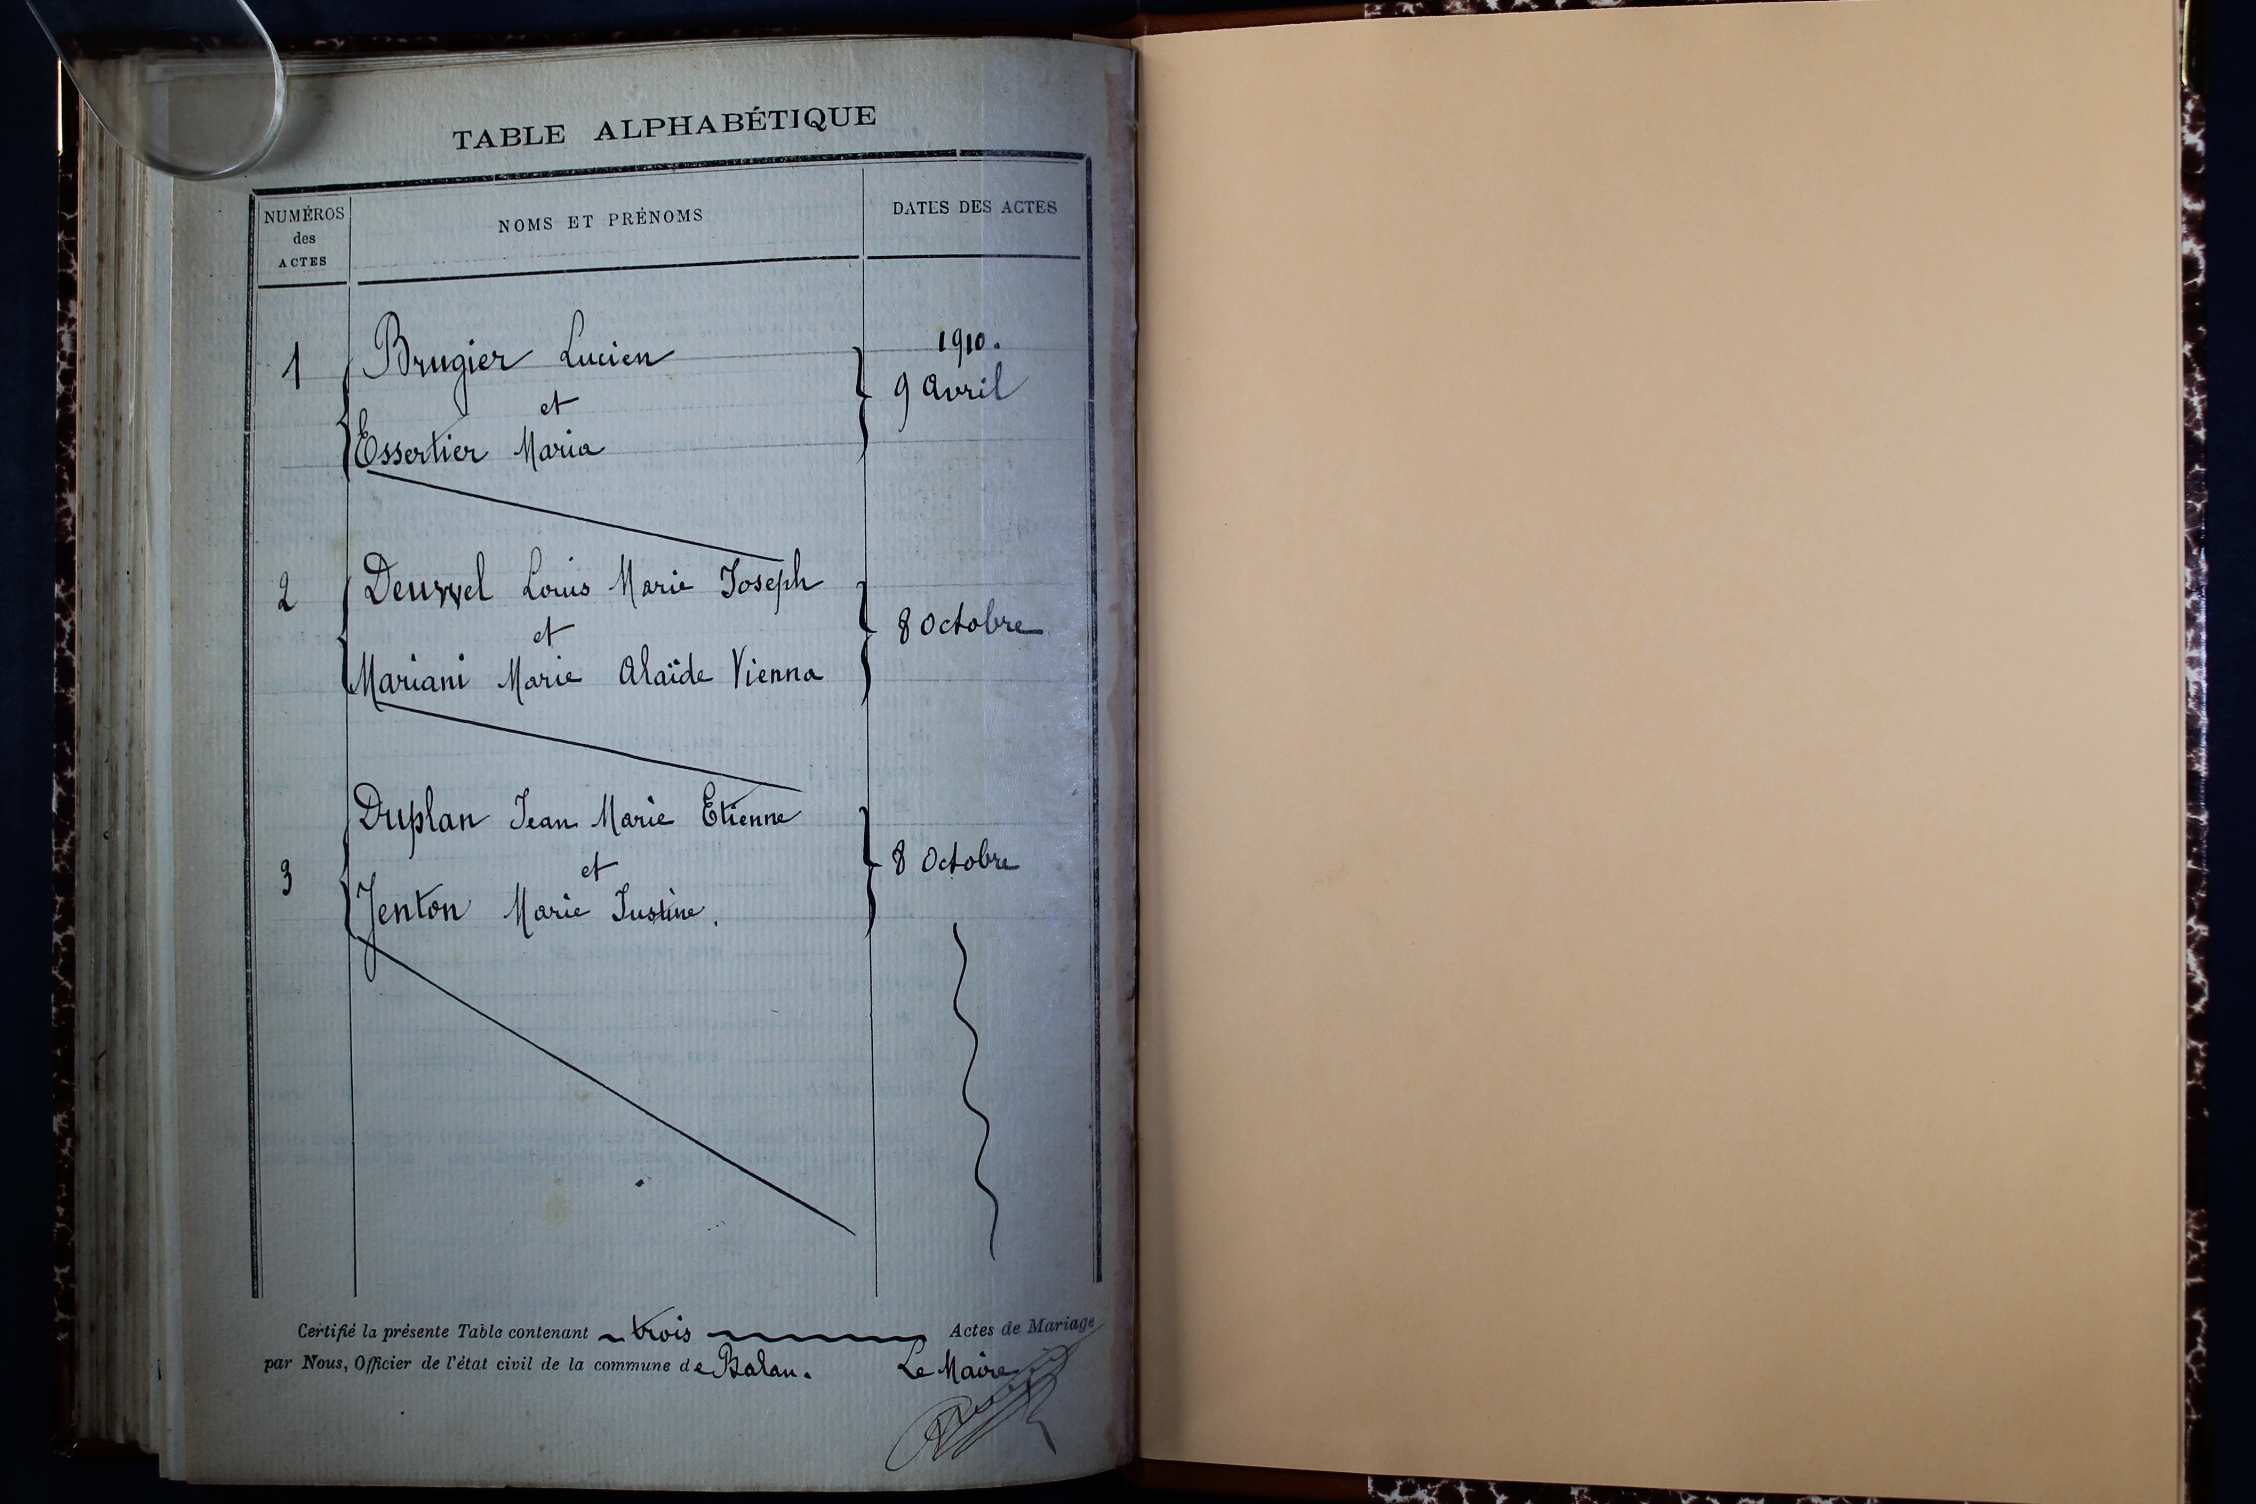 TABLE ALPHABÉTIQUE
NUMÉROS
des
ACTES
NOMS ET PRÉNOMS
DATES DES ACTES
1910.
1 Brugier Lucien
et
Essertier Maria
9 Avril
2 Louis Marie Joseph
et
Mariani Marie Alaïde Vienna
8 Octobre
3 Duplan Jean Marie Etienne
et
Jenton Marie Justine.
8 Octobre
Certifié la présente Table contenant trois Actes de Mariage
par Nous, Officier de l'état civil de la commune de Balan.
Le Maire